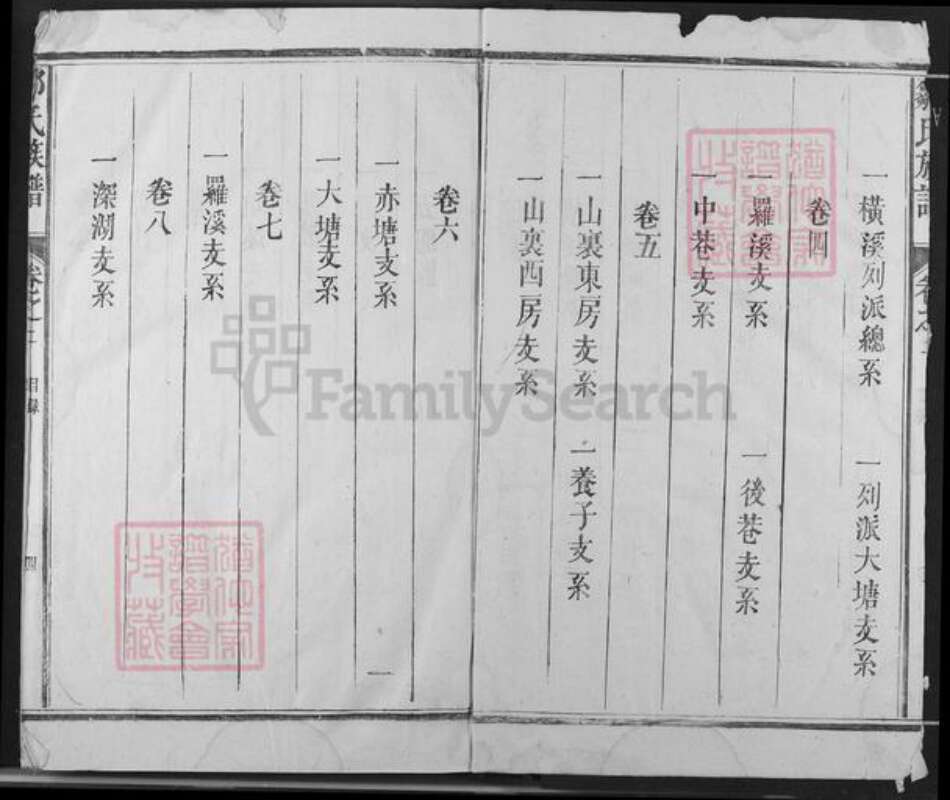 一橫溪列派總系 一列派大塘支系
卷四
一羅溪支系 一後巷支系
一中巷支系
卷五
一山裏東房支系 一養子支系
一山裏西房支系
卷六
一赤塘支系
一大塘支系
卷七
一羅溪支系
卷八
一深湖支系
氏族譜
目錄
四
FamilySearch